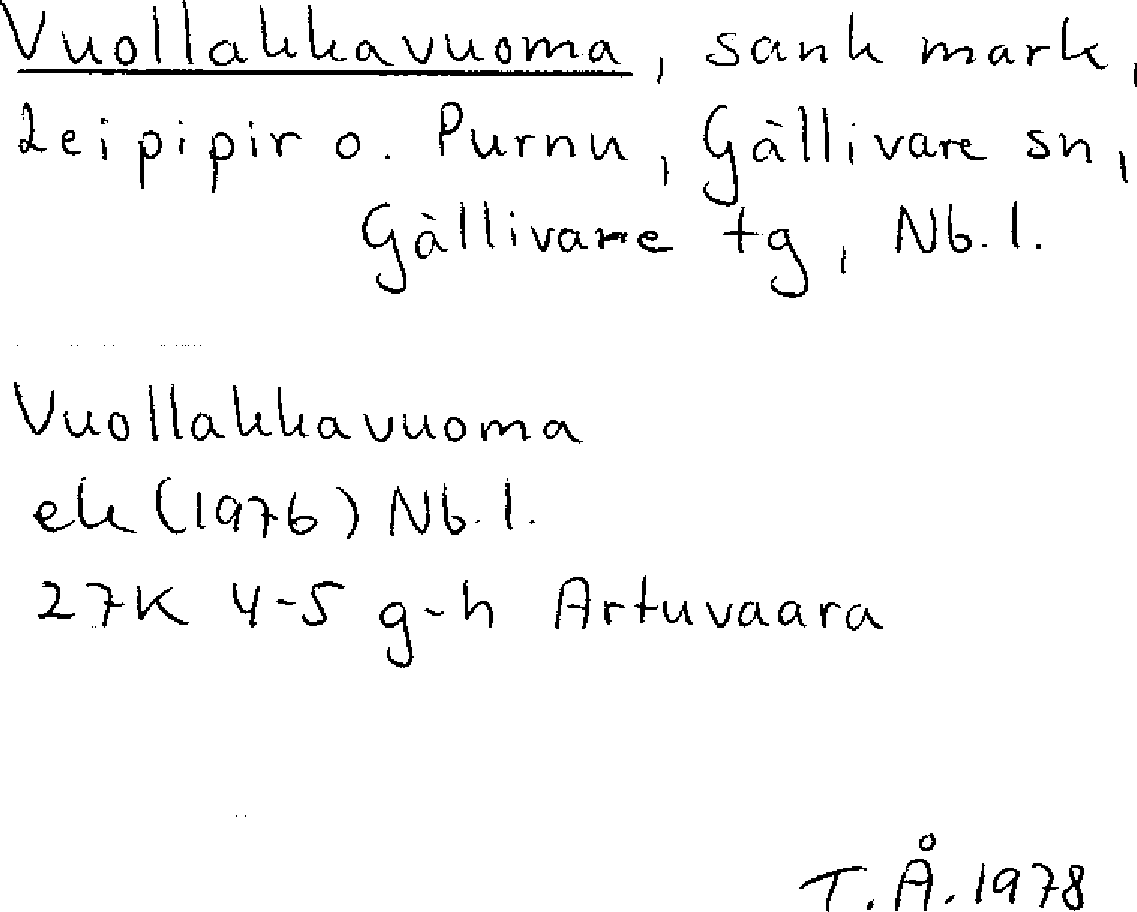 Vuollakkavuoma, sank mark,
Leipipir o. Purnu, Gällivare sn,
Gällivare tg, Nb.l.
Vuollakkavuoma
ek (1976) Nb.l.
27K 4-5 g-h Artuvaara
T.Å. 1978